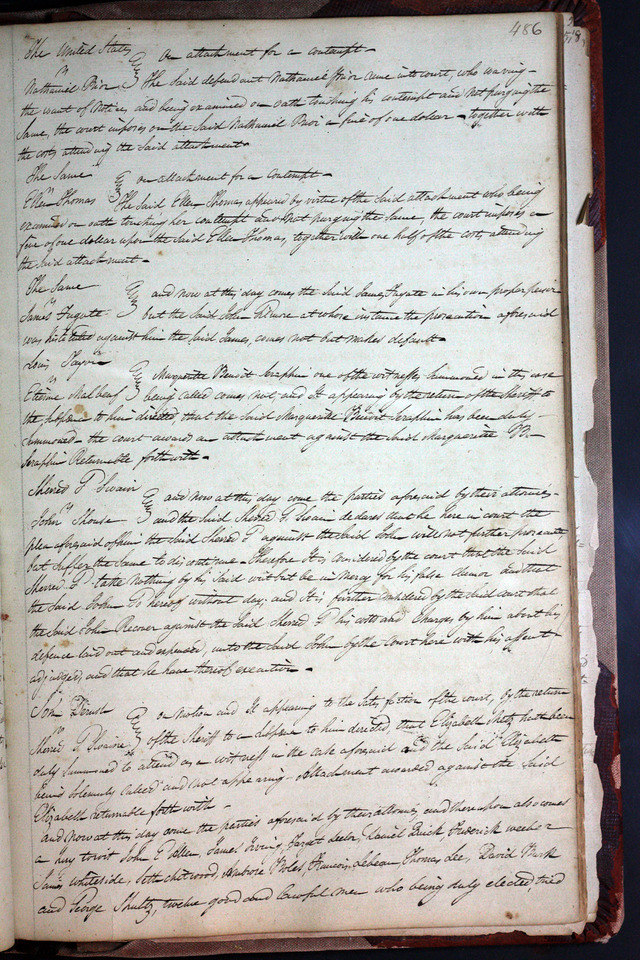 486
The United States
vs } On attachment for a contempt
Nathaniel Prior } The Said defendant Nathaniel Prior came into court, who waving
the want of Notice, and being examined on oath touching his contempt and not purging the
Same, the court imposes on the Said Nathaniel Prior a fine of one dollar together with
the costs attending the Said attachment
The Same
vs } on attachment for a Contempt
Ellen Thomas } The Said Ellen Thomas appeared by virtue of the Said attachment who being
examined on oath touching her contempt and not purging the Same, the court imposes a
fine of one dollar upon the Said Ellen Thomas, together with one half of the costs attending
the Said attachment
The Same
vs } and now at this day comes the Said James Fugate in his own proper person
James Fugate } but the Said John at whose instance the prosecution aforesaid
was instituted against him the Said James, comes not but makes default
Louis
vs } Marguerite Benoit Seraphin one of the witnesses Summoned in this case
Etienne } being called comes not, and It appearing by the return of the Sheriff to
the to him directed, that the Said Marguerite Benoit Seraphin has been duly
summoned the court award an attachment against the Said Marguerite B
Seraphin Returnable forthwith
Sherred P Swain
vs } and now at this day come the parties aforesaid by their attornies
John Shouse } and the Said Sherred P Swain declares that he here in court the
plea aforesaid of him the Said Sherred P against the Said John will not further prosecute
but suffers the Same to discontinue. Therefore It is considered by the court that the Said
Sherred P take nothing by his Said writ but be in mercy for his false clamor and that
the Said John go hereof without day, and It is further considered by the Said court that
the Said John Recover against the Said Sherred P his costs and Charges by him about his
defence laid out and expended, unto the Said John by the Court here with his assent
adjudged, and that he have thereof execution
John
vs } on motion and It appearing to the Satisfaction of the court, by the return
Sherred P Swain } of the Sheriff to a to him directed, that Elizabeth hath been
duly Summoned to attend as a witness in the case aforesaid and the Said Elizabeth
being solemnly called and not appearing Attachment awarded against the Said
Elizabeth returnable forthwith
and now at this day come the parties aforesaid by their attornies, and thereupon also comes
a jury towit John E Allen, James Irving, Daniel Quick, Frederick
James Whiteside, Seth Chitwood, Ambrose Francois Lebeau Thomas Lee, David
and George Shultz, twelve good and lawful men who being duly elected tried